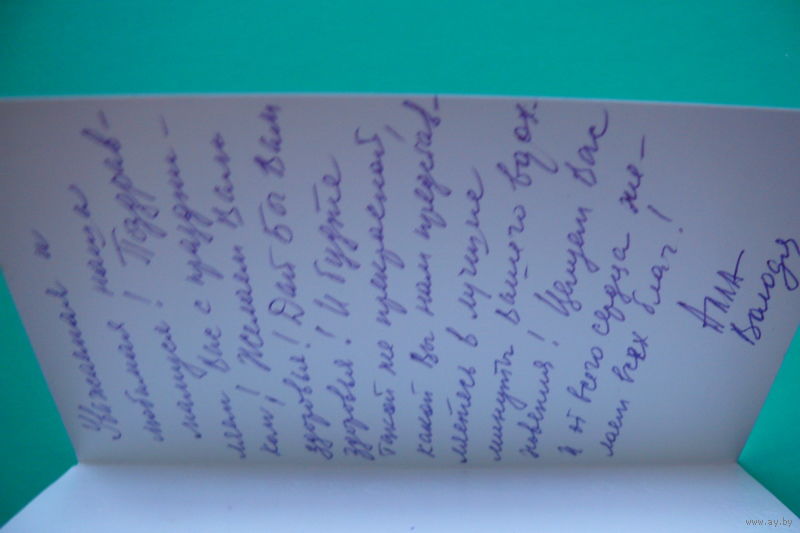 Уважаемая и
любимая наша
мамуся! Поздрав-
ляем Вас с праздни-
ком! Желаем Вам
здоровья! Дай бы Вам
здоровья! И будте
такой же прекрасной,
какой Вы нам представ-
ляетесь в лучшие
минуты Вашего вдох-
новения! Целуем Вас
и от всего сердца же-
лаем всех благ!
Алла
Володя
www.ay.by